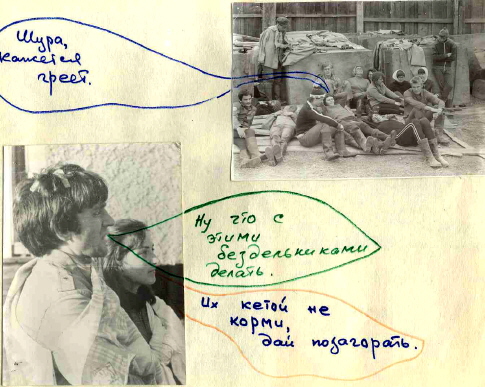 Шура,
кажется
греет.
Ну что с
этими
бездельниками
делать.
Их кетой не
корми,
дай позагорать.